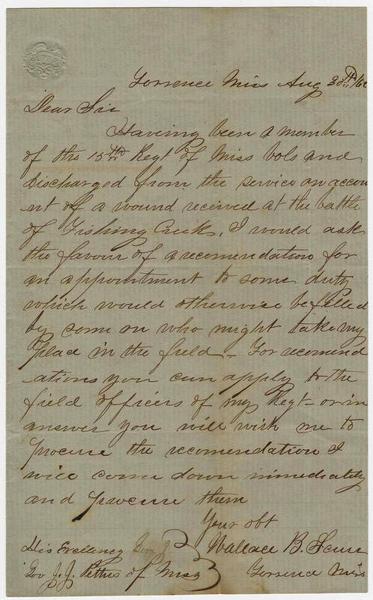 Torrence Miss Aug 30th/62
Dear Sir
Having been a member
of the 15th Regt of Miss Vols and
discharged from the service on accou
nt of a wound received at the battle
of Fishing Creek, I would ask
the favour of a recomendation for
an appointment to some duty
which would otherwise be filled
by som on who might take my
place in the field - For recomend
ations you can apply to the
field officers of my Regt - or in
answer you will wish me to
procure the recomendation I
will come down immediately
and procure them
Your obt
His Excelency Wallace B.
Gov J. J. Pettus of Miss Torrence Miss